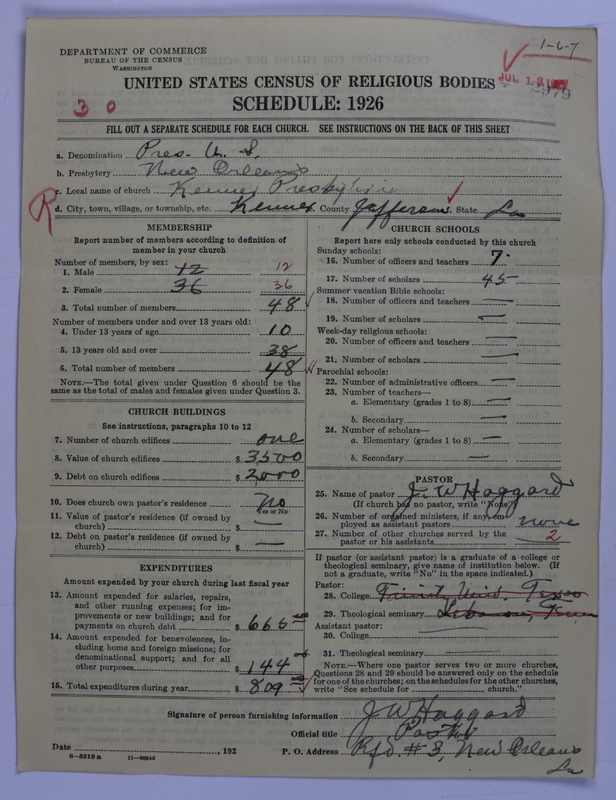 1-6-7
DEPARTMENT OF COMMERCE
BUREAU OF THE CENSUS
WASHINGTON
JUL 13
2979
UNITED STATES CENSUS OF RELIGIOUS BODIES
3 0
SCHEDULE: 1926
FILL OUT A SEPARATE SCHEDULE FOR EACH CHURCH. SEE INSTRUCTIONS ON THE BACK OF THIS SHEET
a. Denomination Pres. U. S.
b. Presbytery New Orleans
c. Local name of church Kenner Presbyterian
R d. City, town, village, or township, etc. Kenner County Jefferson State La
MEMBERSHIP
Report number of members according to definition of
member in your church
Number of members, by sex:
1. Male 12 12
2. Female 36 36
3. Total number of members 48
Number of members under and over 13 years old:
4. Under 13 years of age 10
5. 13 years old and over 38
6. Total number of members 48
NOTE.—The total given under Question 6 should be
same as the total of males and females given under Question 3.
CHURCH BUILDINGS
See instructions, paragraphs 10 to 12
7. Number of church edifices one
8. Value of church edifices $ 3500
9. Debt on church edifices $ 2000
10. Does church own pastor's residence No
Yes or No
11. Value of pastor's residence (if owned by
church) $ —
12. Debt on pastor's residence (if owned by
church) $ —
EXPENDITURES
Amount expended by your church during last fiscal year
13. Amount expended for salaries, repairs,
and other running expenses; for im-
provements or new buildings; and for
payments on church debt $ 665
14. Amount expended for benevolences, in-
cluding home and foreign missions; for
denominational support; and for all
other purposes $ 144
15. Total expenditures during year $ 809
CHURCH SCHOOLS
Report here only schools conducted by this church
Sunday schools:
16. Number of officers and teachers 7
17. Number of scholars 45
Summer vacation Bible schools:
18. Number of officers and teachers —
19. Number of scholars —
Week-day religious schools:
20. Number of officers and teachers —
21. Number of scholars —
Parochial schools:
22. Number of administrative officers —
23. Number of teachers—
a. Elementary (grades 1 to 8) —
b. Secondary —
24. Number of scholars—
a. Elementary (grades 1 to 8) —
b. Secondary —
PASTOR
25. Name of pastor J. W. Haggard
(If church has no pastor, write "None")
26. Number of ordained ministers, if any, em-
ployed as assistant pastors none
27. Number of other churches served by the
pastor or his assistants 2
If pastor (or assistant pastor) is a graduate of a college or
theological seminary, give name of institution below. (If
not a graduate, write "No" in the space indicated.)
Pastor:
28. College Trinity Univ. Texas
29. Theological seminary Lebanon, Tenn
Assistant pastor:
30. College —
31. Theological seminary —
NOTE.—Where one pastor serves two or more churches,
Questions 28 and 29 should be answered only on the schedule
for one of the churches; on the schedules for the other churches,
write "See schedule for church."
Signature of person furnishing information J W Haggard
Official title Pastor
Date , 192 P. O. Address Rfd. #3, New Orleans
La